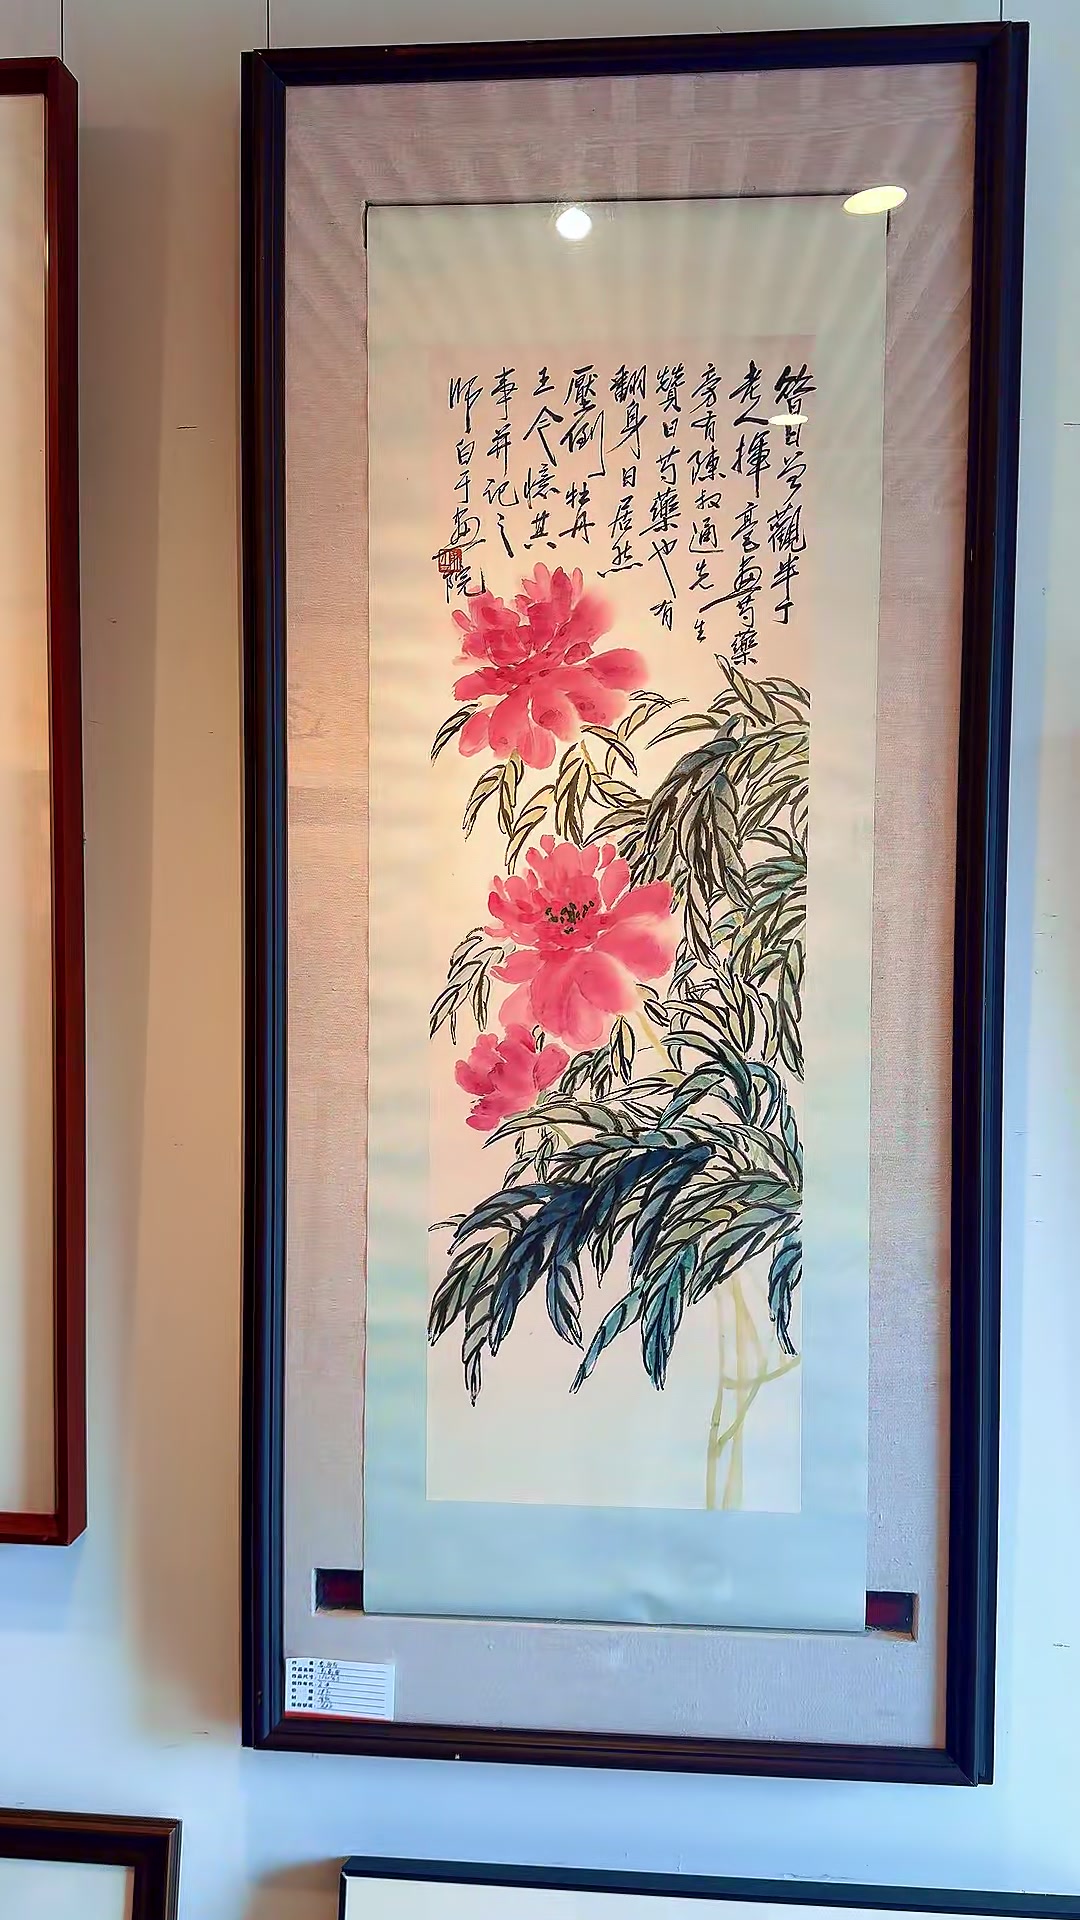 昔日曾觀半丁
老人揮毫畫芍藥
旁有陳叔通先生
贊曰芍藥也有
翻身日居然
壓倒牡丹
王今憶其
事并記之
師白于畫院